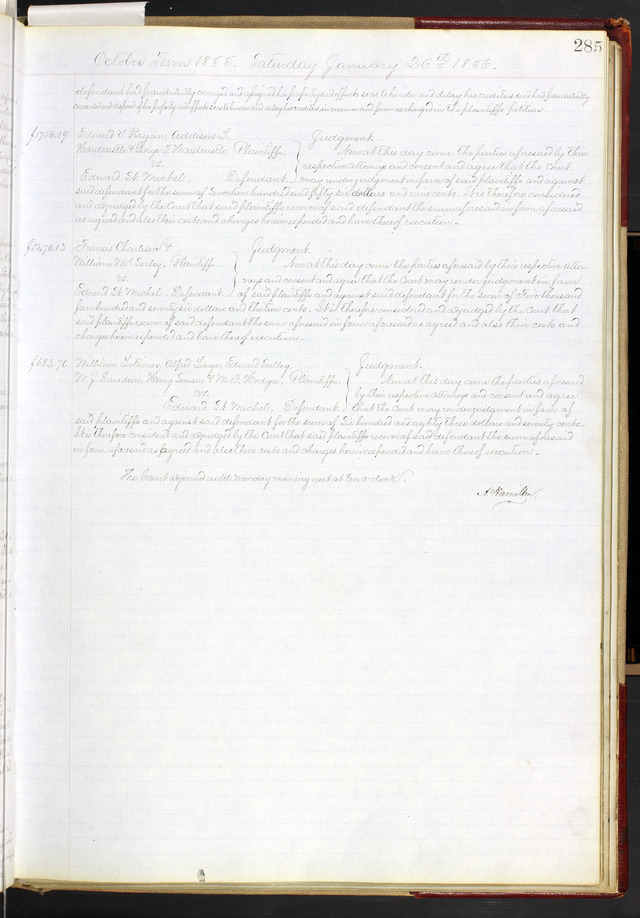 285
October Term 1855. Saturday January 26th 1856.
defendant had fraudulently conveyed and assigned his property and effects so as to hinder and delay his creditors, and had fraudulently
concealed and disposed of his property and effects so as to hinder and delay his creditors, in manner and form as charged in the plaintiffs petition.
$756.09 Edward V. Bryan, Addison T. Judgment
Hardcastle & T. Hardcastle, Plaintiffs Now at this day come the parties aforesaid by their
vs. respective attorneys and consent and agree that the Court
Edward St. Michel, Defendant may render judgment in favor of said plaintiffs and against
said defendant for the sum of Seven hundred and fifty six dollars and nine cents. It is therefore considered
and adjudged by the Court that said plaintiffs recover of said defendant the sum aforesaid in form aforesaid
as agreed and also their costs and charges herein expended and have thereof execution.
Francis Charlson & Judgment
William Mc, Plaintiffs Now at this day come the parties aforesaid by their respective attor-
vs. neys and consent and agree that the Court may render judgment in favor
Edward St. Michel, Defendant of said plaintiffs and against said defendant for the sum of thousand
four hundred and seventy six dollars and thirteen cents. It is therefore considered and adjudged by the Court that
said plaintiffs recover of said defendant the sum aforesaid in form aforesaid as agreed and also their costs and
charges herein expended and have thereof execution.
$683.70 William, Alfred, Edward Judgment.
W. J., Henry Jensen & M. F. Hodges, Plaintiffs Now at this day come the parties aforesaid
vs. by their respective attorneys and consent and agree
Edward St. Michel, Defendant that the Court may render judgment in favor of
said plaintiffs and against said defendant for the sum of Six hundred and eighty three dollars and seventy cents.
It is therefore considered and adjudged by the Court that said plaintiffs recover of said defendant the sum aforesaid
in form aforesaid as agreed and also their costs and charges herein expended and have thereof execution.
The Court adjourned until Monday morning next at ten o'clock.
A. Hamilton